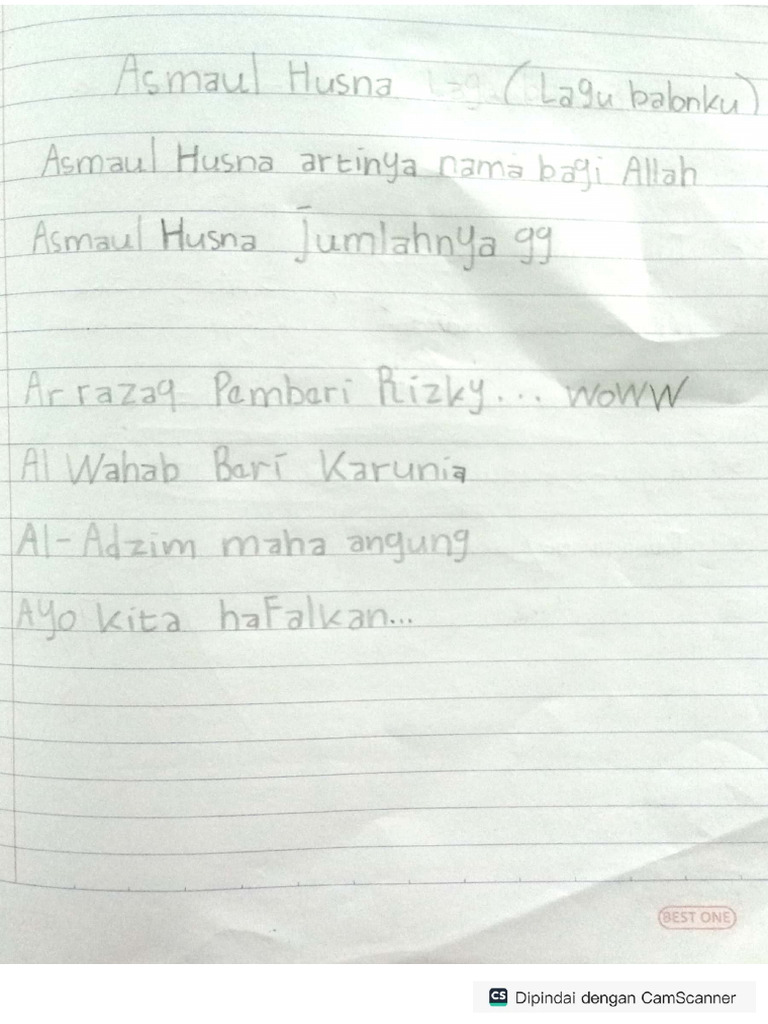 Asmaul Husna (Lagu balonku)
Asmaul Husna artinya nama bagi Allah
Asmaul Husna Jumlahnya 99
Ar razaq Pemberi Rizky... WOWW
Al Wahab Beri Karunia
Al-Adzim maha angung
Ayo kita haFalkan...
BEST ONE
CS Dipindai dengan CamScanner